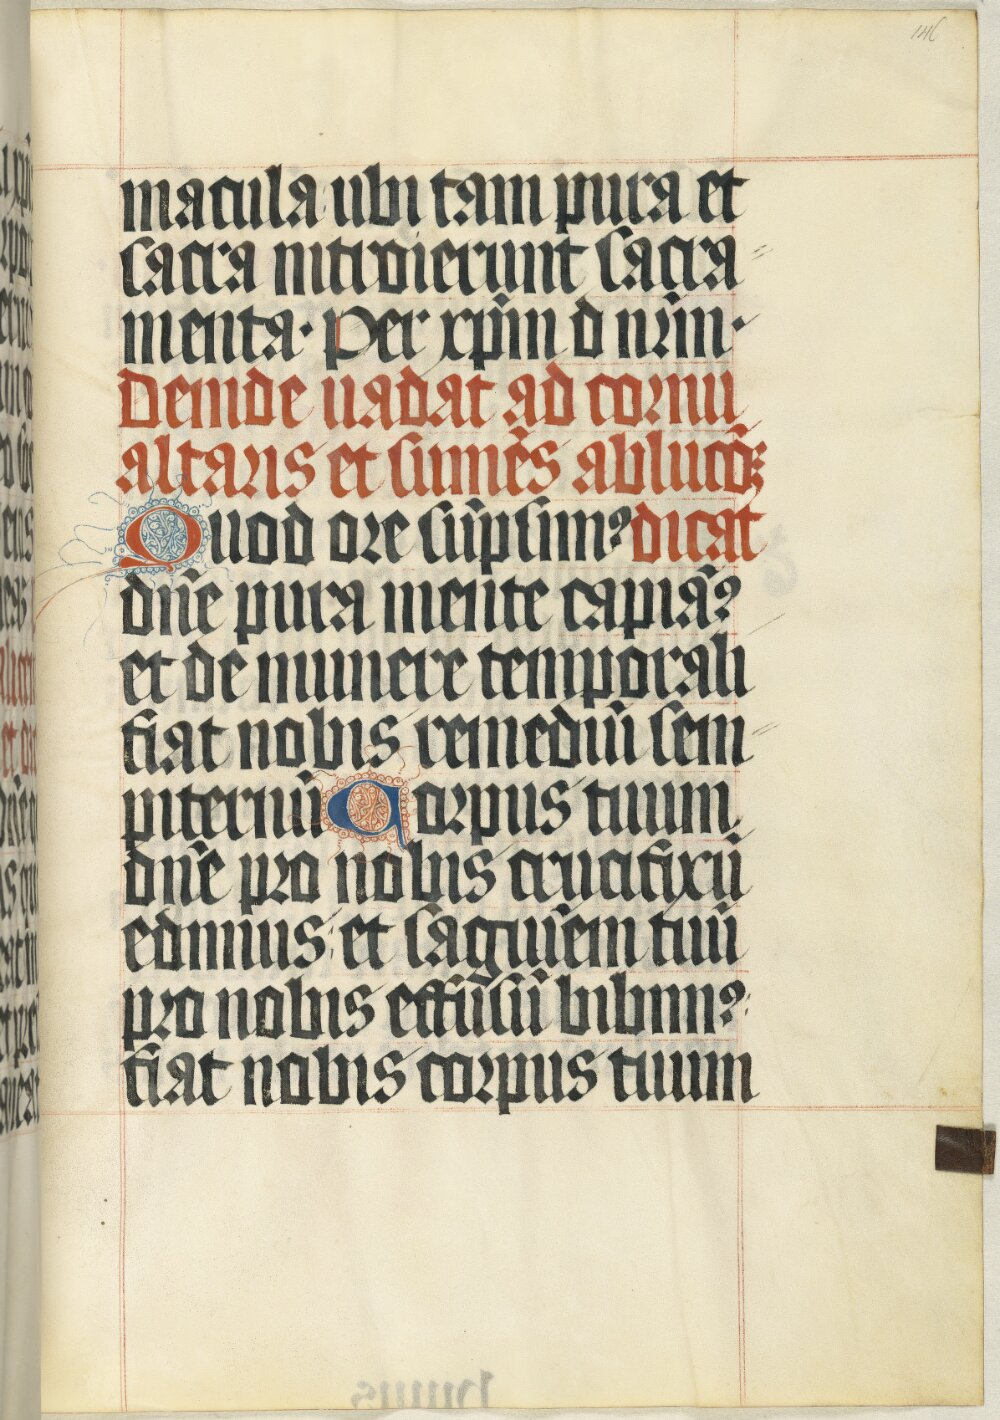 146
macula ubi tam pura et
sacra introierunt sacra
menta. Per xp̄m d nr̄m.
Deinde uadat ad cornu
altaris et sumēs abluc̄oꝫ
Quod ore sūpsimꝰ dicat
dn̄e pura mente capiāꝰ
et de munere temporali
fiat nobis remediū sem
piternū Corpus tuum
dn̄e pro nobis crucifixū
edimus et sāguīem tuū
pro nobis effūsū bibimꝰ
fiat nobis corpus tuum